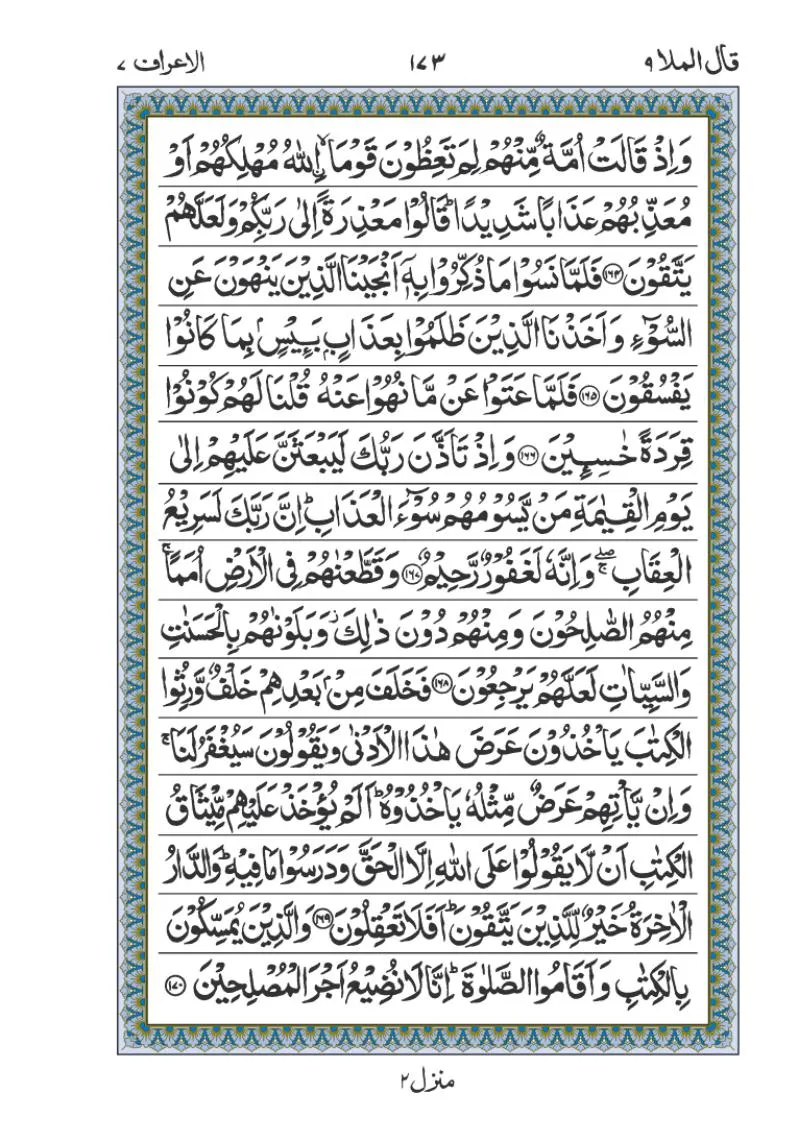 قال الملا ۹ ۱۷۳ الاعراف ۷
وَاِذْ قَالَتْ اُمَّةٌ مِّنْهُمْ لِمَ تَعِظُوْنَ قَوْمَا ۙ اِ۟للّٰهُ مُهْلِكُهُمْ اَوْ
مُعَذِّبُهُمْ عَذَابًا شَدِيْدًا ؕ قَالُوْا مَعْذِرَةً اِلٰى رَبِّكُمْ وَلَعَلَّهُمْ
يَتَّقُوْنَ ۝۱۶۴ فَلَمَّا نَسُوْا مَا ذُكِّرُوْا بِهٖۤ اَنْجَيْنَا الَّذِيْنَ يَنْهَوْنَ عَنِ
السُّوْٓءِ وَاَخَذْنَا الَّذِيْنَ ظَلَمُوْا بِعَذَابٍۭ بَـِٕيْسٍۭ بِمَا كَانُوْا
يَفْسُقُوْنَ ۝۱۶۵ فَلَمَّا عَتَوْا عَنْ مَّا نُهُوْا عَنْهُ قُلْنَا لَهُمْ كُوْنُوْا
قِرَدَةً خٰسِـِٕيْنَ ۝۱۶۶ وَاِذْ تَاَذَّنَ رَبُّكَ لَيَبْعَثَنَّ عَلَيْهِمْ اِلٰى
يَوْمِ الْقِيٰمَةِ مَنْ يَّسُوْمُهُمْ سُوْٓءَ الْعَذَابِ ؕ اِنَّ رَبَّكَ لَسَرِيْعُ
الْعِقَابِ ۖۚ وَاِنَّهٗ لَغَفُوْرٌ رَّحِيْمٌ ۝۱۶۷ وَقَطَّعْنٰهُمْ فِى الْاَرْضِ اُمَمًا ۚ
مِنْهُمُ الصّٰلِحُوْنَ وَمِنْهُمْ دُوْنَ ذٰلِكَ ؗ وَبَلَوْنٰهُمْ بِالْحَسَنٰتِ
وَالسَّيِّاٰتِ لَعَلَّهُمْ يَرْجِعُوْنَ ۝۱۶۸ فَخَلَفَ مِنْۢ بَعْدِهِمْ خَلْفٌ وَّرِثُوا
الْكِتٰبَ يَاْخُذُوْنَ عَرَضَ هٰذَا الْاَدْنٰى وَيَقُوْلُوْنَ سَيُغْفَرُ لَنَا ۚ
وَاِنْ يَّاْتِهِمْ عَرَضٌ مِّثْلُهٗ يَاْخُذُوْهُ ؕ اَلَمْ يُؤْخَذْ عَلَيْهِمْ مِّيْثَاقُ
الْكِتٰبِ اَنْ لَّا يَقُوْلُوْا عَلَى اللّٰهِ اِلَّا الْحَقَّ وَدَرَسُوْا مَا فِيْهِ ؕ وَالدَّارُ
الْاٰخِرَةُ خَيْرٌ لِّلَّذِيْنَ يَتَّقُوْنَ ؕ اَفَلَا تَعْقِلُوْنَ ۝۱۶۹ وَالَّذِيْنَ يُمَسِّكُوْنَ
بِالْكِتٰبِ وَاَقَامُوا الصَّلٰوةَ ؕ اِنَّا لَا نُضِيْعُ اَجْرَ الْمُصْلِحِيْنَ ۝۱۷۰
منزل ۲